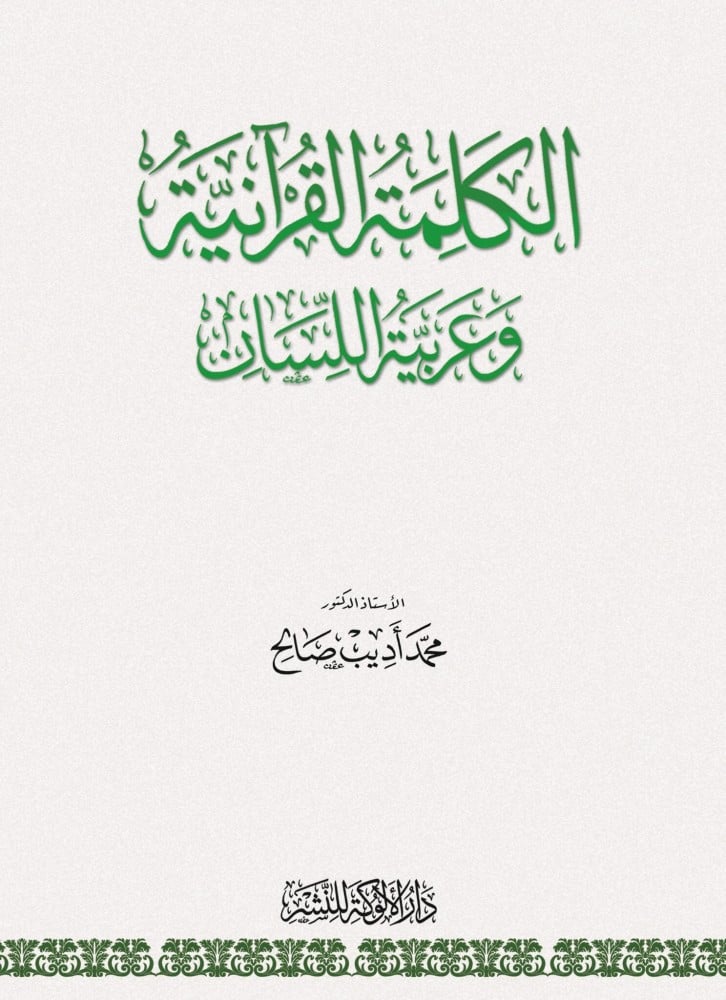 الكَلِمَةُ القُرْآنيَّةُ
وَعَرَبيَّةُ اللِّسَانِ
الأستاذ الدكتور
محمَّد أَدِيبْ صَالِح
دَارُ الأَلُوكَةِ لِلنَّشْرِ